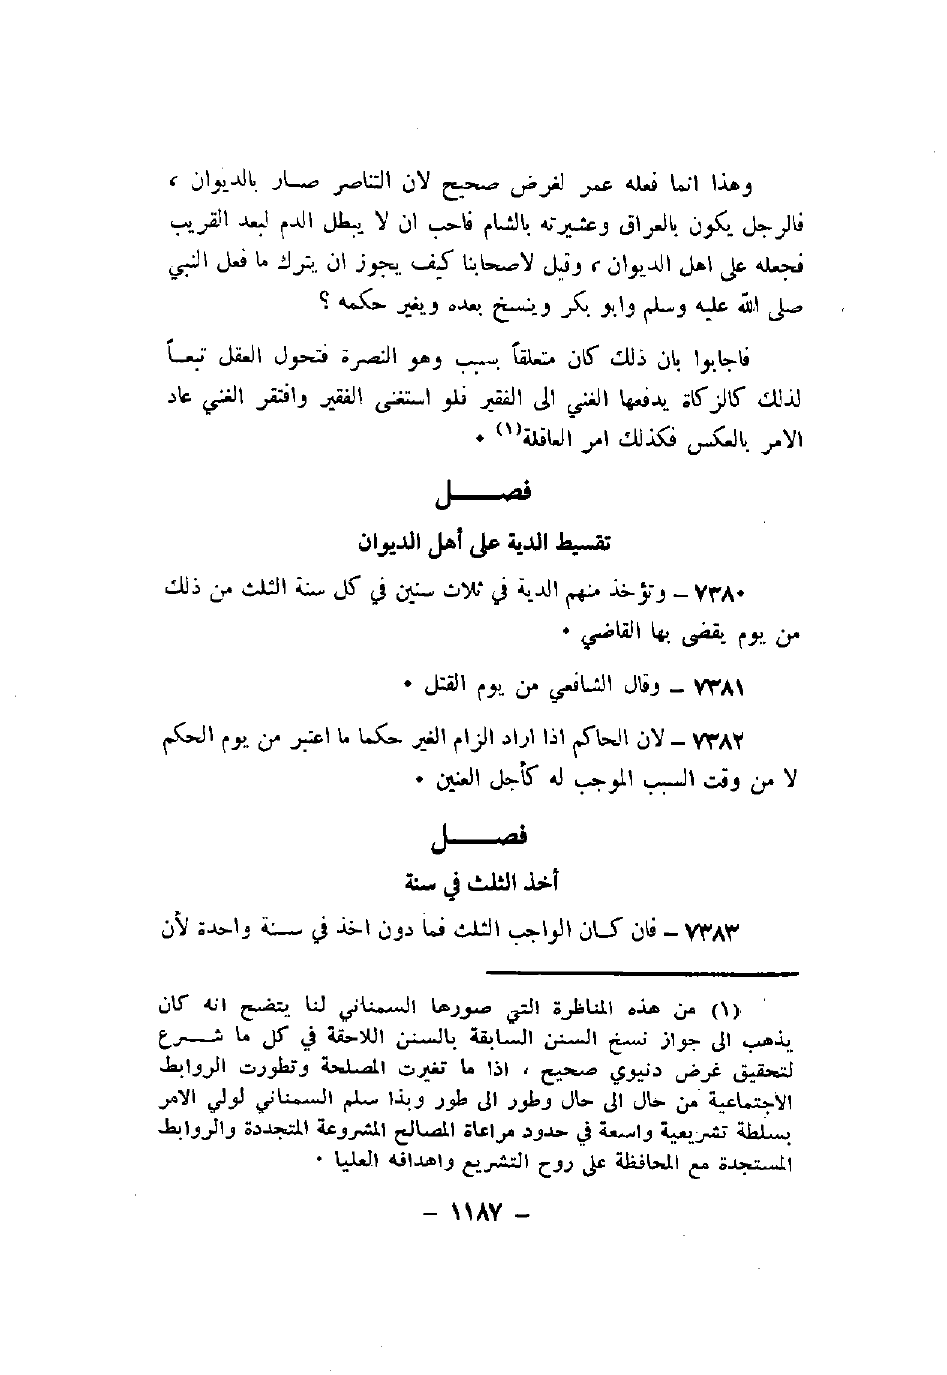 وهذا انما فعله عمر لغرض صحيح لان التناصر صار بالديوان ،
فالرجل يكون بالعراق وعشيرته بالشام فاحب ان لا يبطل الدم لبعد القريب
فجعله على اهل الديوان ، وقيل لاصحابنا كيف يجوز ان يترك ما فعل النبي
صلى الله عليه وسلم وابو بكر وينسخ بعده ويغير حكمه ؟
فاجابوا بان ذلك كان متعلقاً بسبب وهو النصرة فتحول العقل تبعاً
لذلك كالزكاة يدفعها الغني الى الفقير فلو استغنى الفقير وافتقر الغني عاد
الامر بالعكس فكذلك امر العاقلة(١) ٠
فصـــــل
تقسيط الدية على أهل الديوان
٧٣٨٠ – وتؤخذ منهم الدية في ثلاث سنين في كل سنة الثلث من ذلك
من يوم يقضى بها القاضي ٠
٧٣٨١ – وقال الشافعي من يوم القتل ٠
٧٣٨٢ – لان الحاكم اذا اراد الزام الغير حكما ما اعتبر من يوم الحكم
لا من وقت السبب الموجب له كأجل العنين ٠
فصـــــل
أخذ الثلث في سنة
٧٣٨٣ – فان كـان الواجب الثلث فما دون اخذ في سـنة واحدة لأن
(١) من هذه المناظرة التي صورها السمناني لنا يتضح انه كان
يذهب الى جواز نسخ السنن السابقة بالسنن اللاحقة في كل ما شــرع
لتحقيق غرض دنيوي صحيح ، اذا ما تغيرت المصلحة وتطورت الروابط
الاجتماعية من حال الى حال وطور الى طور وبذا سلم السمناني لولي الامر
بسلطة تشريعية واسعة في حدود مراعاة المصالح المشروعة المتجددة والروابط
المستجدة مع المحافظة على روح التشريع واهدافه العليا ٠
– ١١٨٧ –